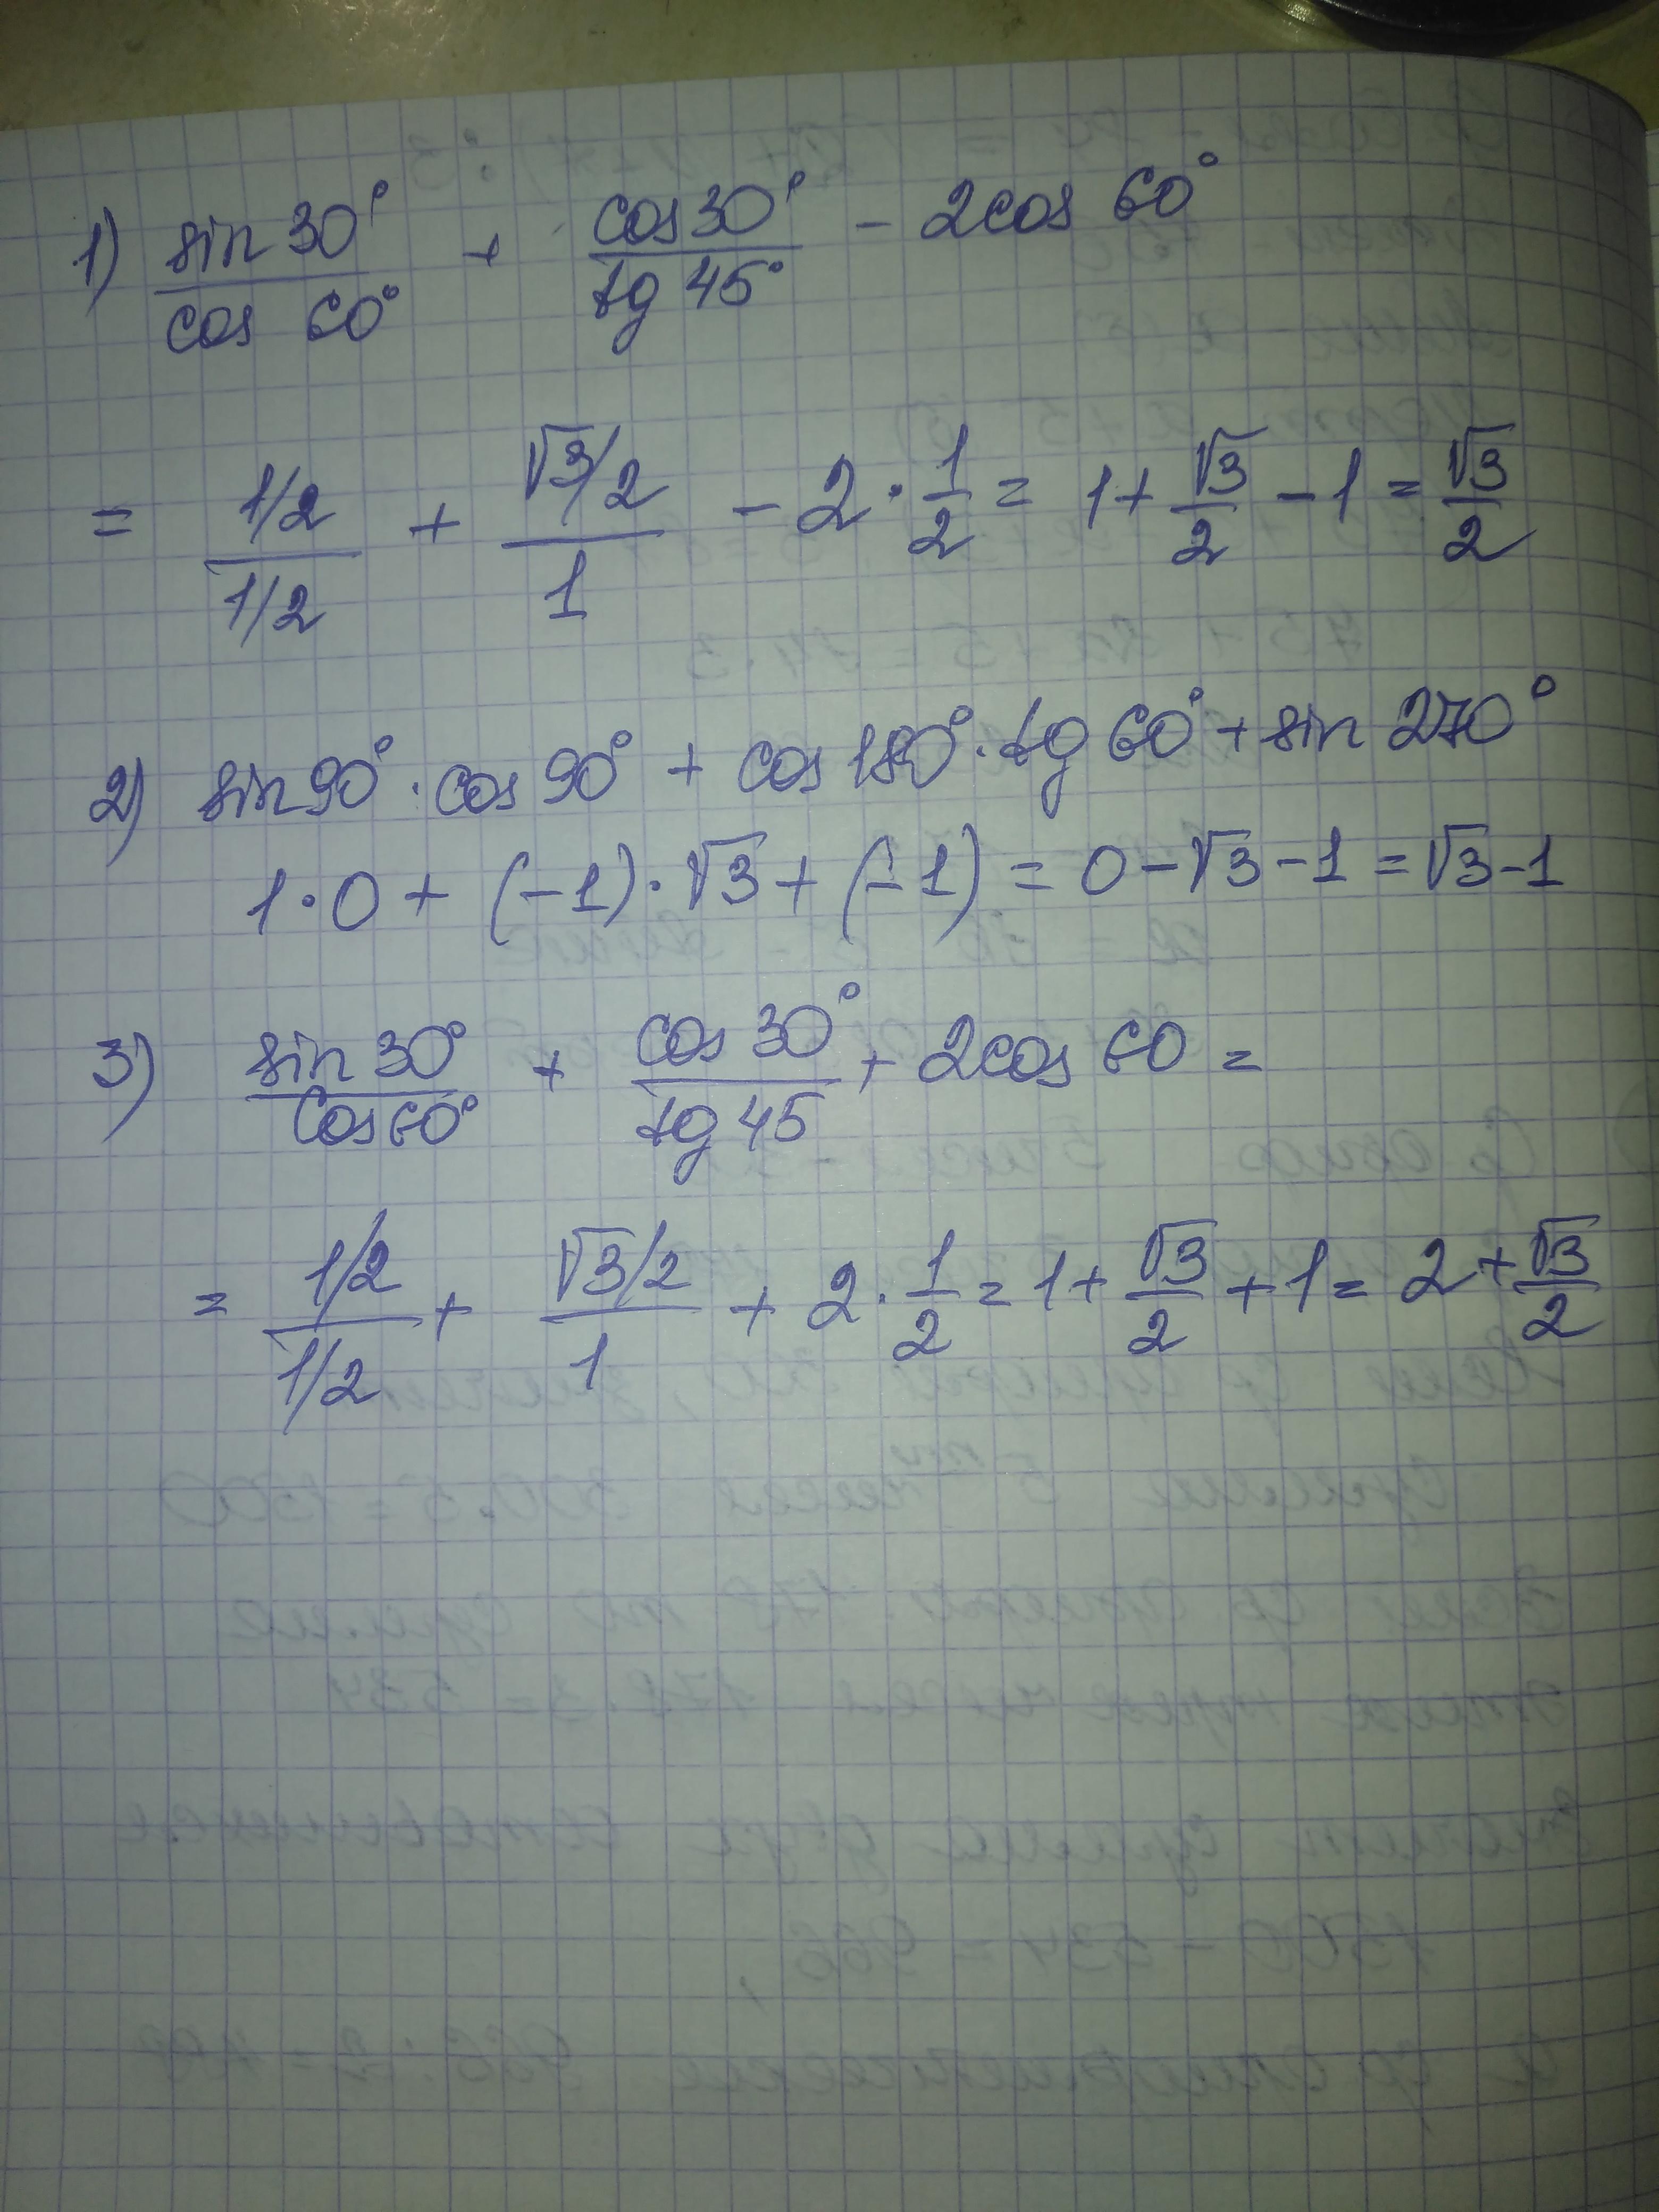 1) sin 30° / cos 60° + cos 30° / tg 45° - 2cos 60°
= 1/2 / 1/2 + √3/2 / 1 - 2 · 1/2 = 1 + √3/2 - 1 = √3/2
2) sin 90° · cos 90° + cos 180° · tg 60° + sin 270°
1 · 0 + (-1) · √3 + (-1) = 0 - √3 - 1 = √3 - 1
3) sin 30° / cos 60° + cos 30° / tg 45 + 2cos 60 =
= 1/2 / 1/2 + √3/2 / 1 + 2 · 1/2 = 1 + √3/2 + 1 = 2 + √3/2